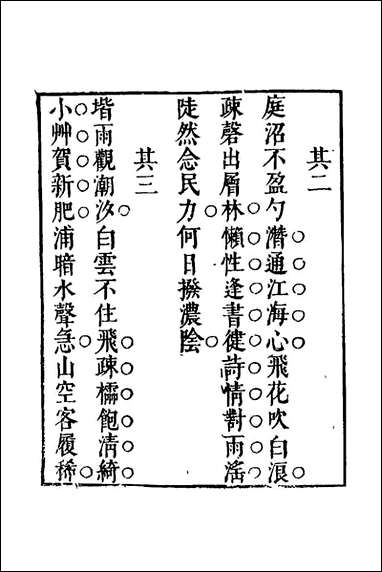 其二
庭沼不盈勺潛通江海心飛花吹白浪
疎磬出層林懶性逢書健詩情對雨滛
陡然念民力何日撥濃陰
其三
堦雨觀潮汐白雲不住飛疎櫺飽清綺
小艸賀新肥浦暗水聲急山空客履稀